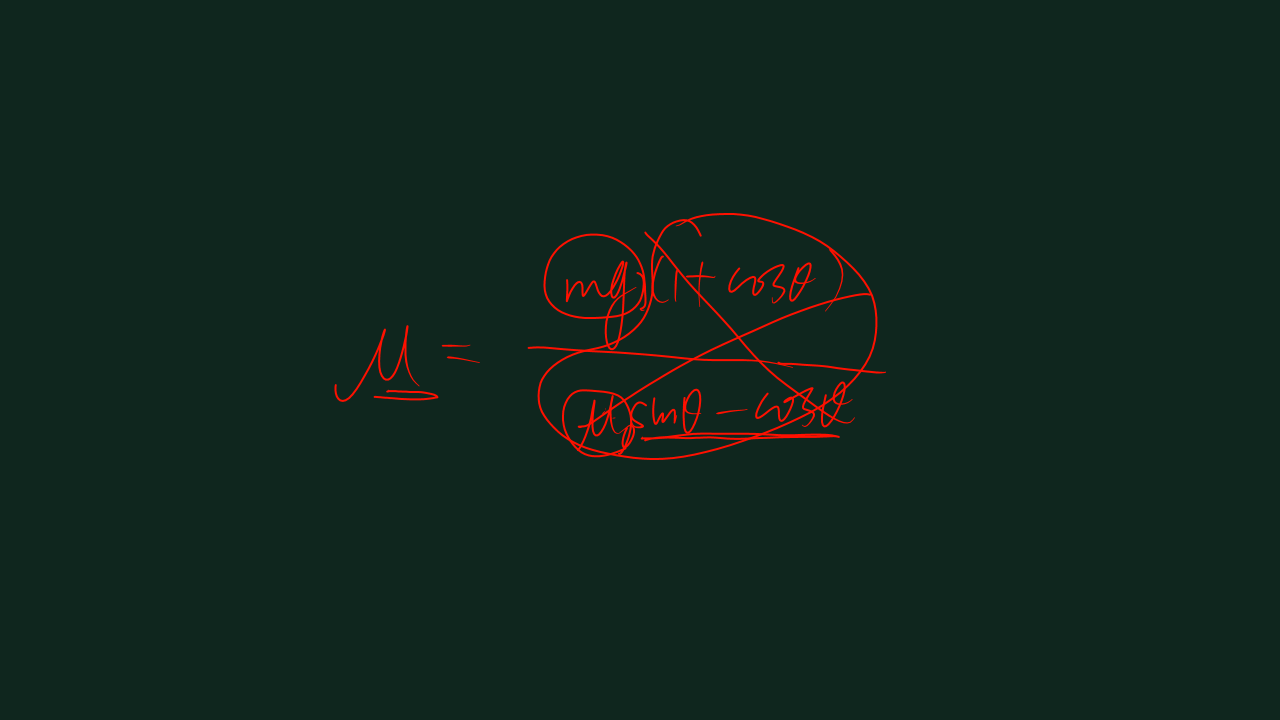 μ =
mg(1 + cosθ)
μ sinθ - cosθ